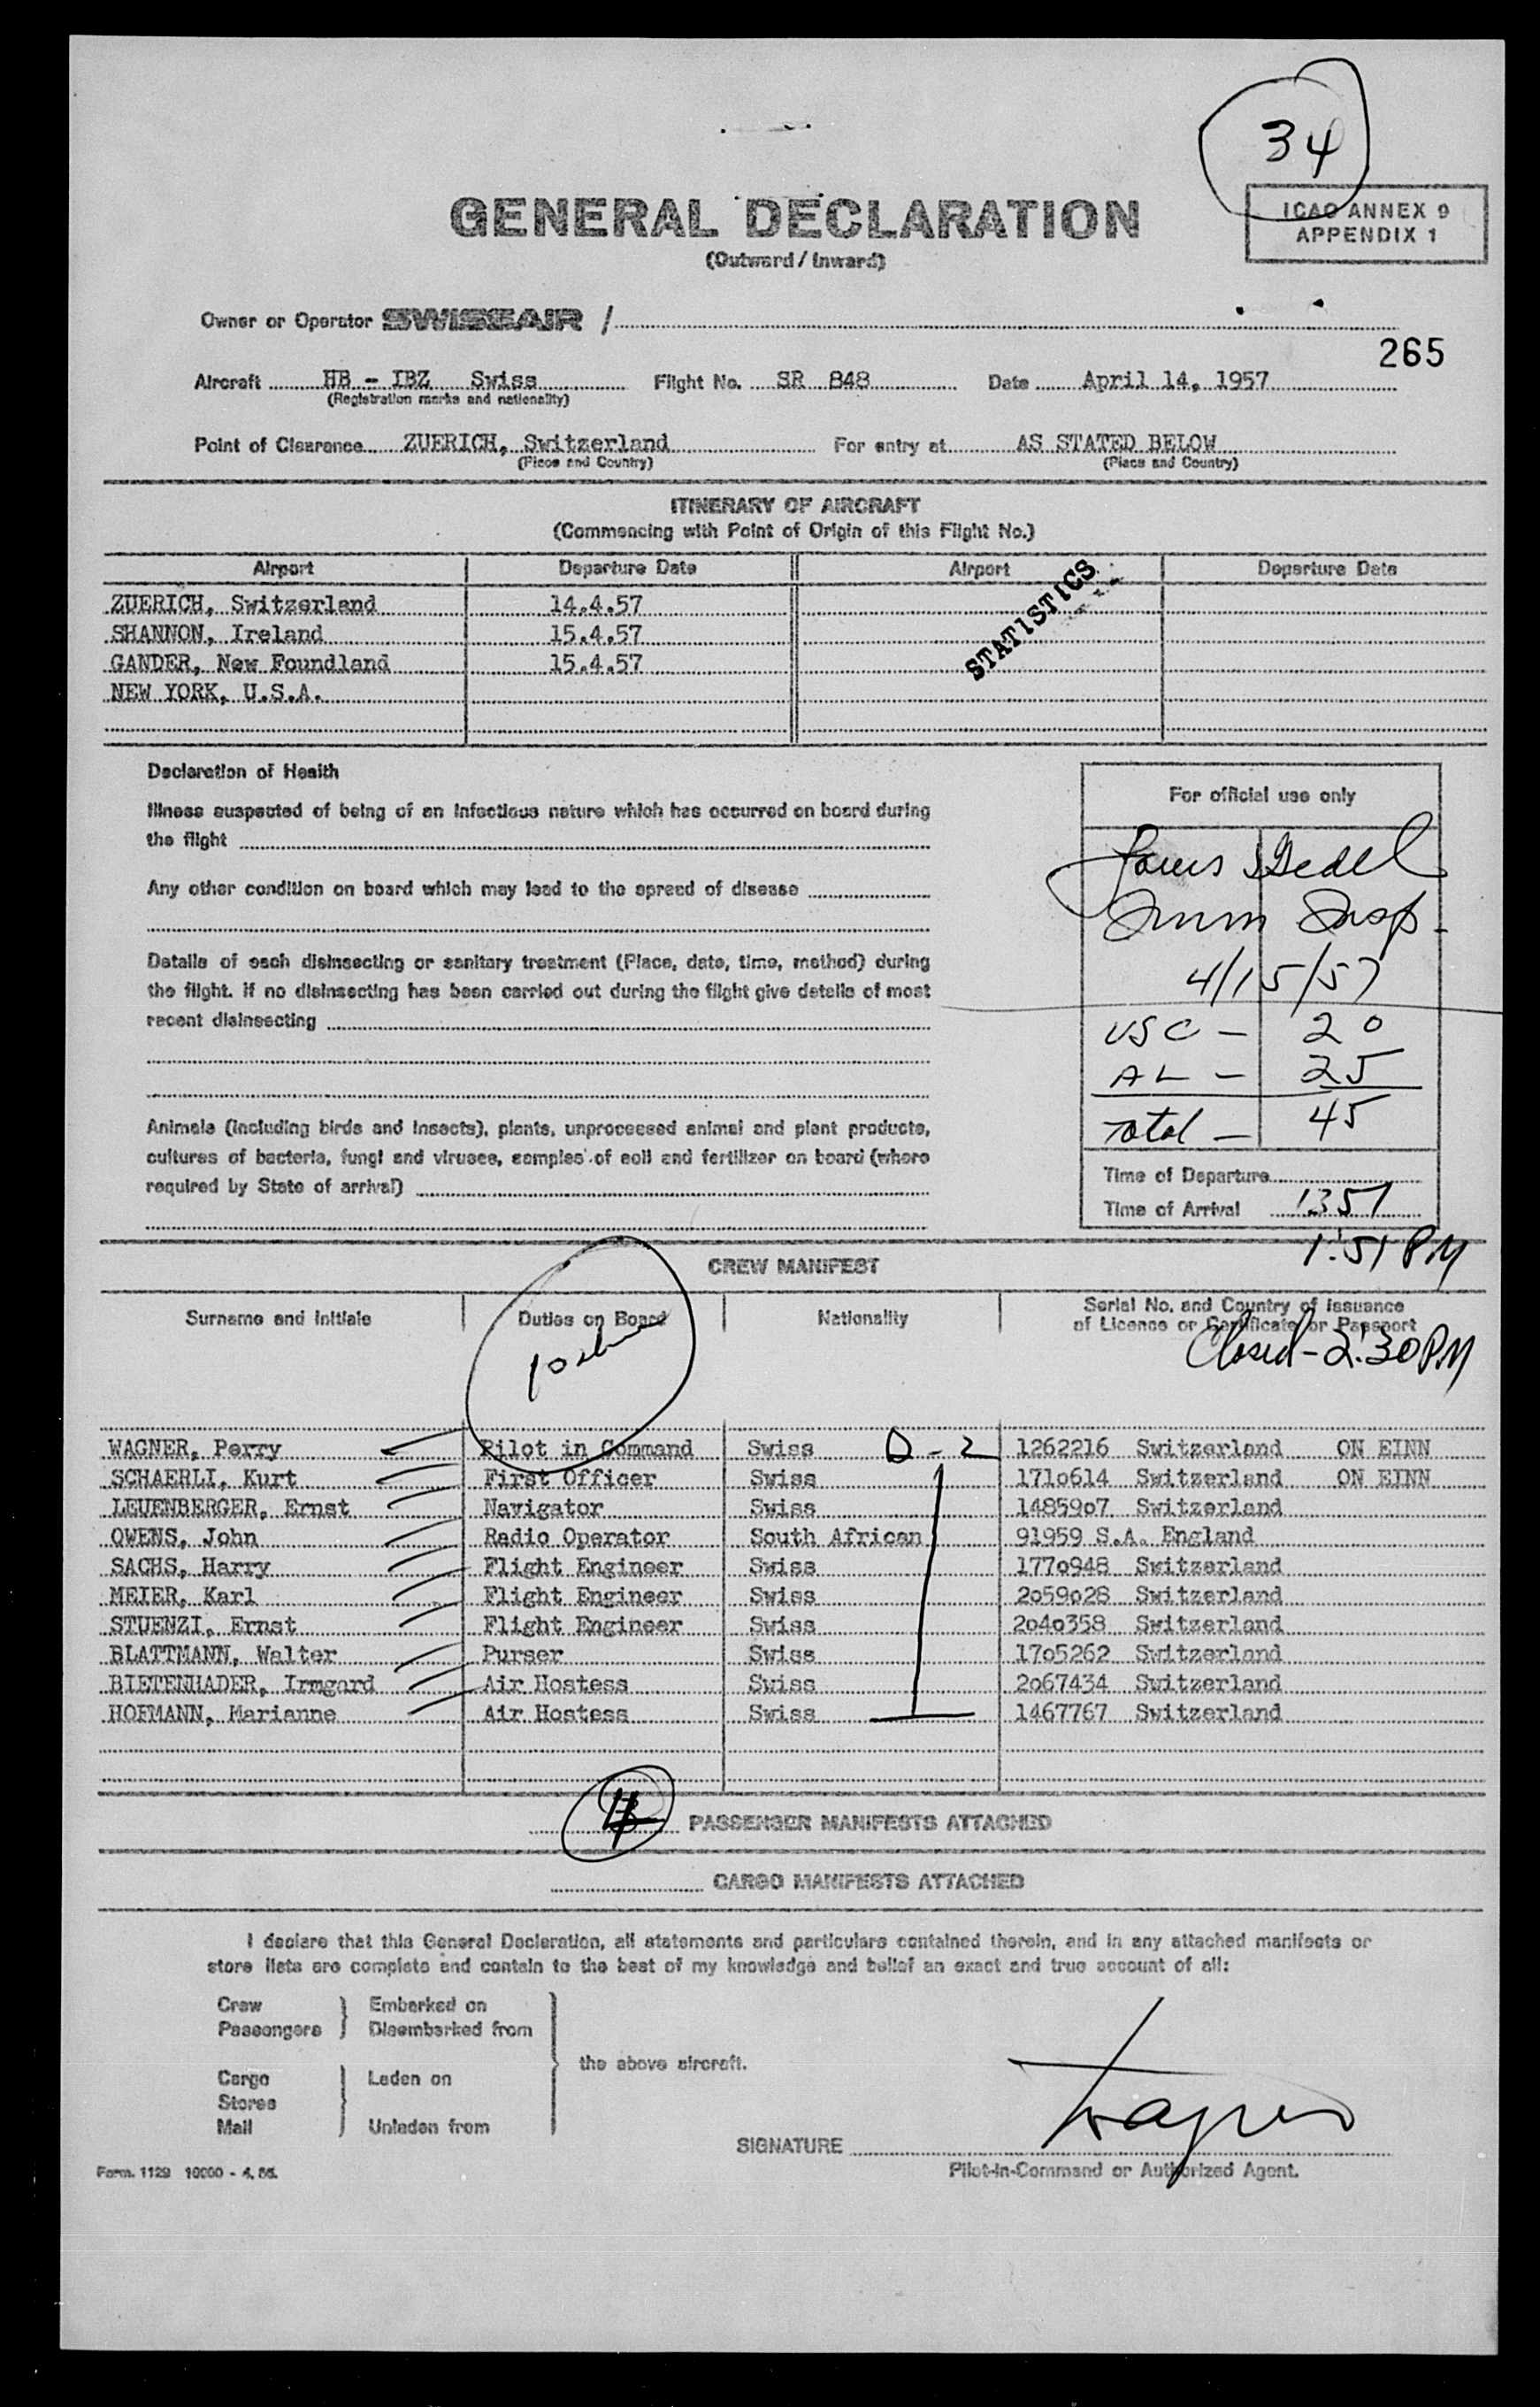 34
GENERAL DECLARATION
(Outward / Inward)
ICAO ANNEX 9
APPENDIX 1
Owner or Operator SWISSAIR /
265
Aircraft HB - IBZ Swiss Flight No. SR 848 Date April 14, 1957
(Registration marks and nationality)
Point of Clearance ZUERICH, Switzerland For entry at AS STATED BELOW
(Place and Country) (Place and Country)
ITINERARY OF AIRCRAFT
(Commencing with Point of Origin of this Flight No.)
Airport Departure Date Airport Departure Date
STATISTICS
ZUERICH, Switzerland 14.4.57
SHANNON, Ireland 15.4.57
GANDER, New Foundland 15.4.57
NEW YORK, U.S.A.
Declaration of Health
Illness suspected of being of an infectious nature which has occurred on board during
the flight
Any other condition on board which may lead to the spread of disease
Details of each disinsecting or sanitary treatment (Place, date, time, method) during
the flight. If no disinsecting has been carried out during the flight give details of most
recent disinsecting
Animals (including birds and insects), plants, unprocessed animal and plant products,
cultures of bacteria, fungi and viruses, samples of soil and fertilizer on board (where
required by State of arrival)
For official use only
Imm Insp.
4/15/57
USC - 20
AL - 25
Total - 45
Time of Departure
Time of Arrival 1351
1:51 PM
CREW MANIFEST
Surname and Initials Duties on Board Nationality Serial No. and Country of Issuance
of Licence or Certificate or Passport
Closed - 2:30 PM
WAGNER, Perry Pilot in Command Swiss D-2 1262216 Switzerland ON EINN
SCHAERLI, Kurt First Officer Swiss 1710614 Switzerland ON EINN
LEUENBERGER, Ernst Navigator Swiss 1485907 Switzerland
OWENS, John Radio Operator South African 91959 S.A. England
SACHS, Harry Flight Engineer Swiss 1770948 Switzerland
MEIER, Karl Flight Engineer Swiss 2059028 Switzerland
STUENZI, Ernst Flight Engineer Swiss 2040358 Switzerland
BLATTMANN, Walter Purser Swiss 1705262 Switzerland
BIETENHADER, Irmgard Air Hostess Swiss 2067434 Switzerland
HOFMANN, Marianne Air Hostess Swiss 1467767 Switzerland
PASSENGER MANIFESTS ATTACHED
CARGO MANIFESTS ATTACHED
I declare that this General Declaration, all statements and particulars contained therein, and in any attached manifests or
store lists are complete and contain to the best of my knowledge and belief an exact and true account of all:
Crew Embarked on
Passengers Disembarked from
the above aircraft.
Cargo Laden on
Stores
Mail Unladen from
SIGNATURE Wagner
Pilot-in-Command or Authorized Agent.
Form. 1129 10000 - 4. 56.